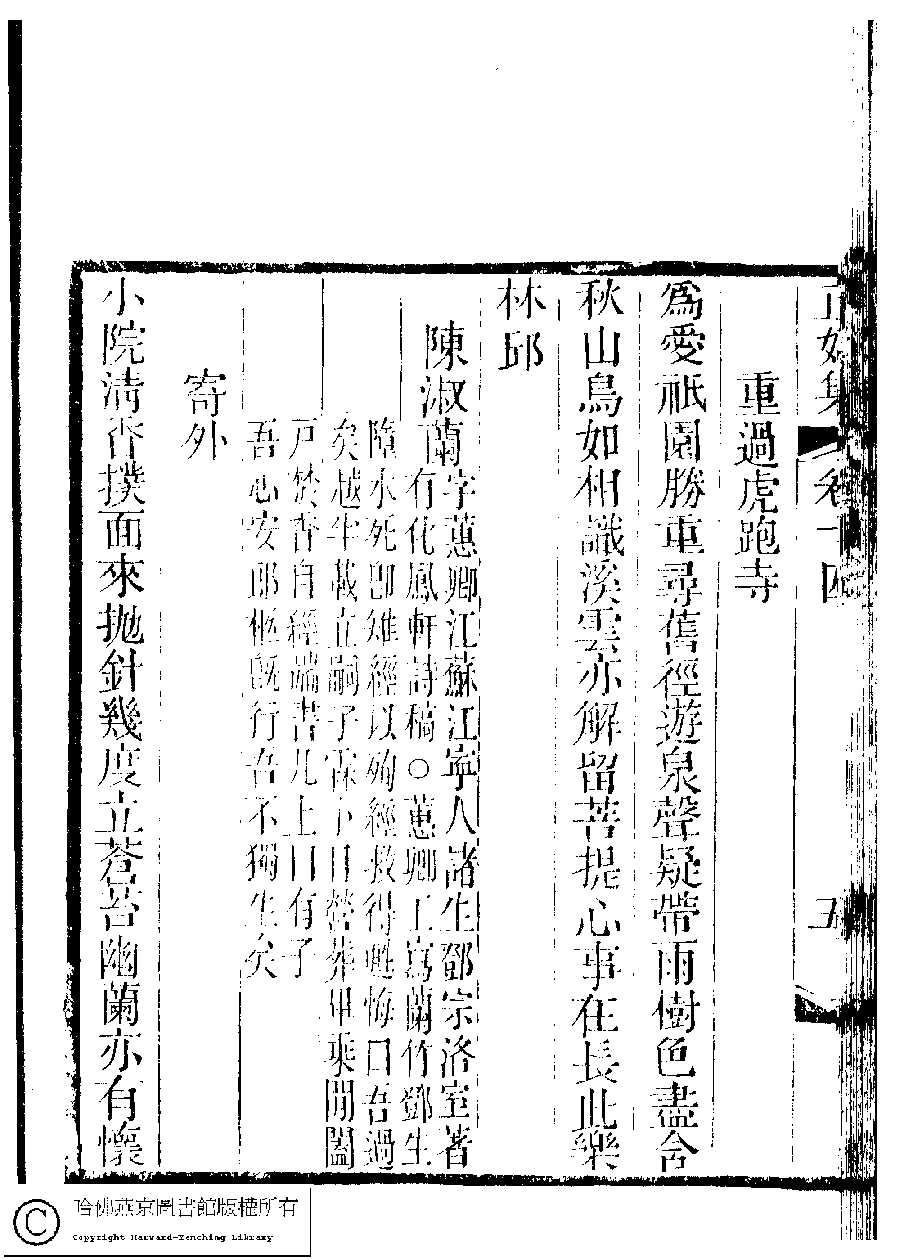 重過虎跑寺
爲愛祇園勝重尋舊徑遊泉聲疑帶雨樹色盡含
秋山鳥如相識溪雲亦解留菩提心事在長此樂
林邱
陳淑蘭字蕙卿江蘇江寧人諸生鄧宗洛室著
有化鳳軒詩稿○蕙卿工寫蘭竹鄧生
隋水死卽雉經以殉經救得甦悔曰吾過
矣越半載立嗣子霖卜日營葬畢乘閒闔
戸於杳自經端書几上曰有子
吾心安郎柩旣行吾不獨生矣
寄外
小院淸香撲面來拋針幾度立蒼苔幽蘭亦有懷
卷十四
五
哈佛燕京圖書館版權所有
Copyright Harvard-Yenching Library